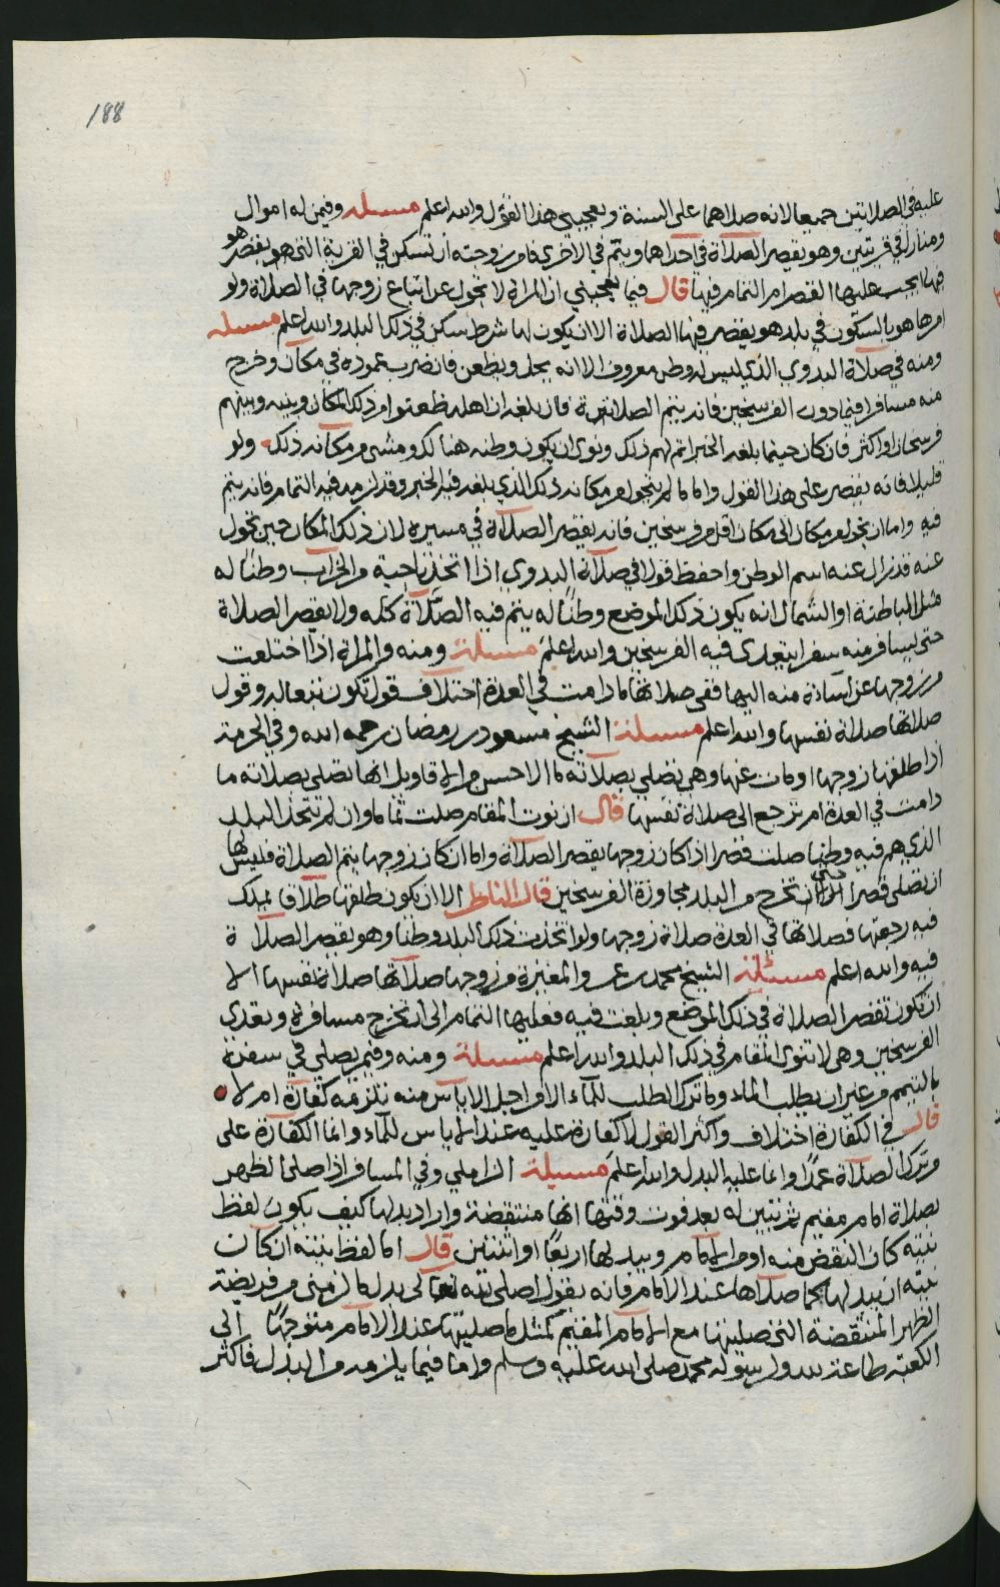 188
عليه في الصلاتين جميعا لانه صلاهما على السنة ويعجبني هذا القول والله اعلم مسئلة وفيمن له اموال
ومنازل في قريتين وهو يقصر الصلاة في احداهما ويتم في الاخرى فامر زوجته ان تسكن في القرية التي هو يقصر هو
فيها يجب عليها القصر ام التمام فيها قال فيما يعجبني ان المراة لا تحول عن اتباع زوجها في الصلاة ولو
امرها هو بالسكون في بلد هو يقصر فيها الصلاة الا ان يكون لها شرط سكن في ذلك البلد والله اعلم مسئلة
ومنه في صلاة البدوي الذي ليس له وطن معروف الا انه يحل ويظعن فان ضرب عموده في مكان وخرج
منه مسافرا فيما دون الفرسخين فانه يتم الصلاة فان بلغه ان اهله ظعنوا من ذلك المكان وبينه وبينهم
فرسخان او اكثر فان كان حينما بلغه الخبر اتم لهم ذلك ونوى ان يكون وطنه هنالك ومشى من مكانه ذلك ولو
قليلا فانه يقصر على هذا القول واما ما لم يتحول من مكانه ذلك الذي بلغه فيه الخبر وقد لزمه فيه التمام فانه يتم
فيه واما ان تحول من مكان الى مكان اقل من فرسخين فانه يقصر الصلاة في مسيره لان ذلك المكان حين تحول
عنه قد زال عنه اسم الوطن واحفظ قولا في صلاة البدوي اذا اتخذ ناحية من الخراب وطنا له
مثل الباطنة او الشمال انه يكون ذلك الموضع وطنا له يتم فيه الصلاة كله ولا يقصر الصلاة
حتى يسافر منه سفرا يتعدى فيه الفرسخين والله اعلم مسئلة ومنه والمراة اذا اختلعت
من زوجها عن اساءة منه اليها ففي صلاتها ما دامت في العدة اختلاف قول تكون تبعا له وقول
صلاتها صلاة نفسها والله اعلم مسئلة الشيخ مسعود بن رمضان رحمه الله وفي الحرمة
اذا طلقها زوجها او مات عنها وهي تصلي بصلاته ما الاحسن من الاقاويل انها تصلي بصلاته ما
دامت في العدة ام ترجع الى صلاة نفسها قال ان نوت المقام صلت تماما وان لم تتخذ البلد
الذي هم فيه وطنا صلت قصرا اذا كان زوجها يقصر الصلاة واما ان كان زوجها يتم الصلاة فليس لها
ان تصلي قصرا حتى ان تخرج من البلد مجاوزة الفرسخين قال الناظر الا ان يكون طلقها طلاق يملك
فيه رجعتها فصلاتها في العدة صلاة زوجها ولو اتخذت ذلك البلد وطنا وهو يقصر الصلاة
فيه والله اعلم مسئلة الشيخ محمد بن عمر والمغيزة من زوجها صلاتها صلاة نفسها الا
ان تكون تقصر الصلاة في ذلك الموضع وبلغت فيه فعليها التمام الى ان تخرج مسافرة وتعدي
الفرسخين وهي لا تنوي المقام في ذلك البلد والله اعلم مسئلة ومنه وفيمن يصلي في سفره
بالتيمم من غير ان يطلب الماء وما ترك الطلب للماء الا من اجل الاياس منه تلزمه كفارة ام لا
قال في الكفارة اختلاف واكثر القول لا كفارة عليه عند الاياس للماء وانما الكفارة على
من ترك الصلاة عمدا وانما عليه البدل والله اعلم مسئلة الزاملي وفي المسافر اذا صلى الظهر
بصلاة امام مقيم ثم تبين له بعد فوت وقتها انها منتقضة واراد بدلها كيف يكون لفظ
نيته كان النقض منه او من الامام ويبدلها اربعا او اثنتين قال اما لفظ نيته ان كان
نيته ان يبدلها كما صلاها عند الامام فانه يقول اصلي لله تعالى بدل ما لزمني من فريضة
الظهر المنتقضة التي صليتها مع الامام المقيم كمثل ما صليتها عند الامام متوجها الى
الكعبة طاعة لله ولرسوله محمد صلى الله عليه وسلم واما فيما يلزمه من البدل فاكثر